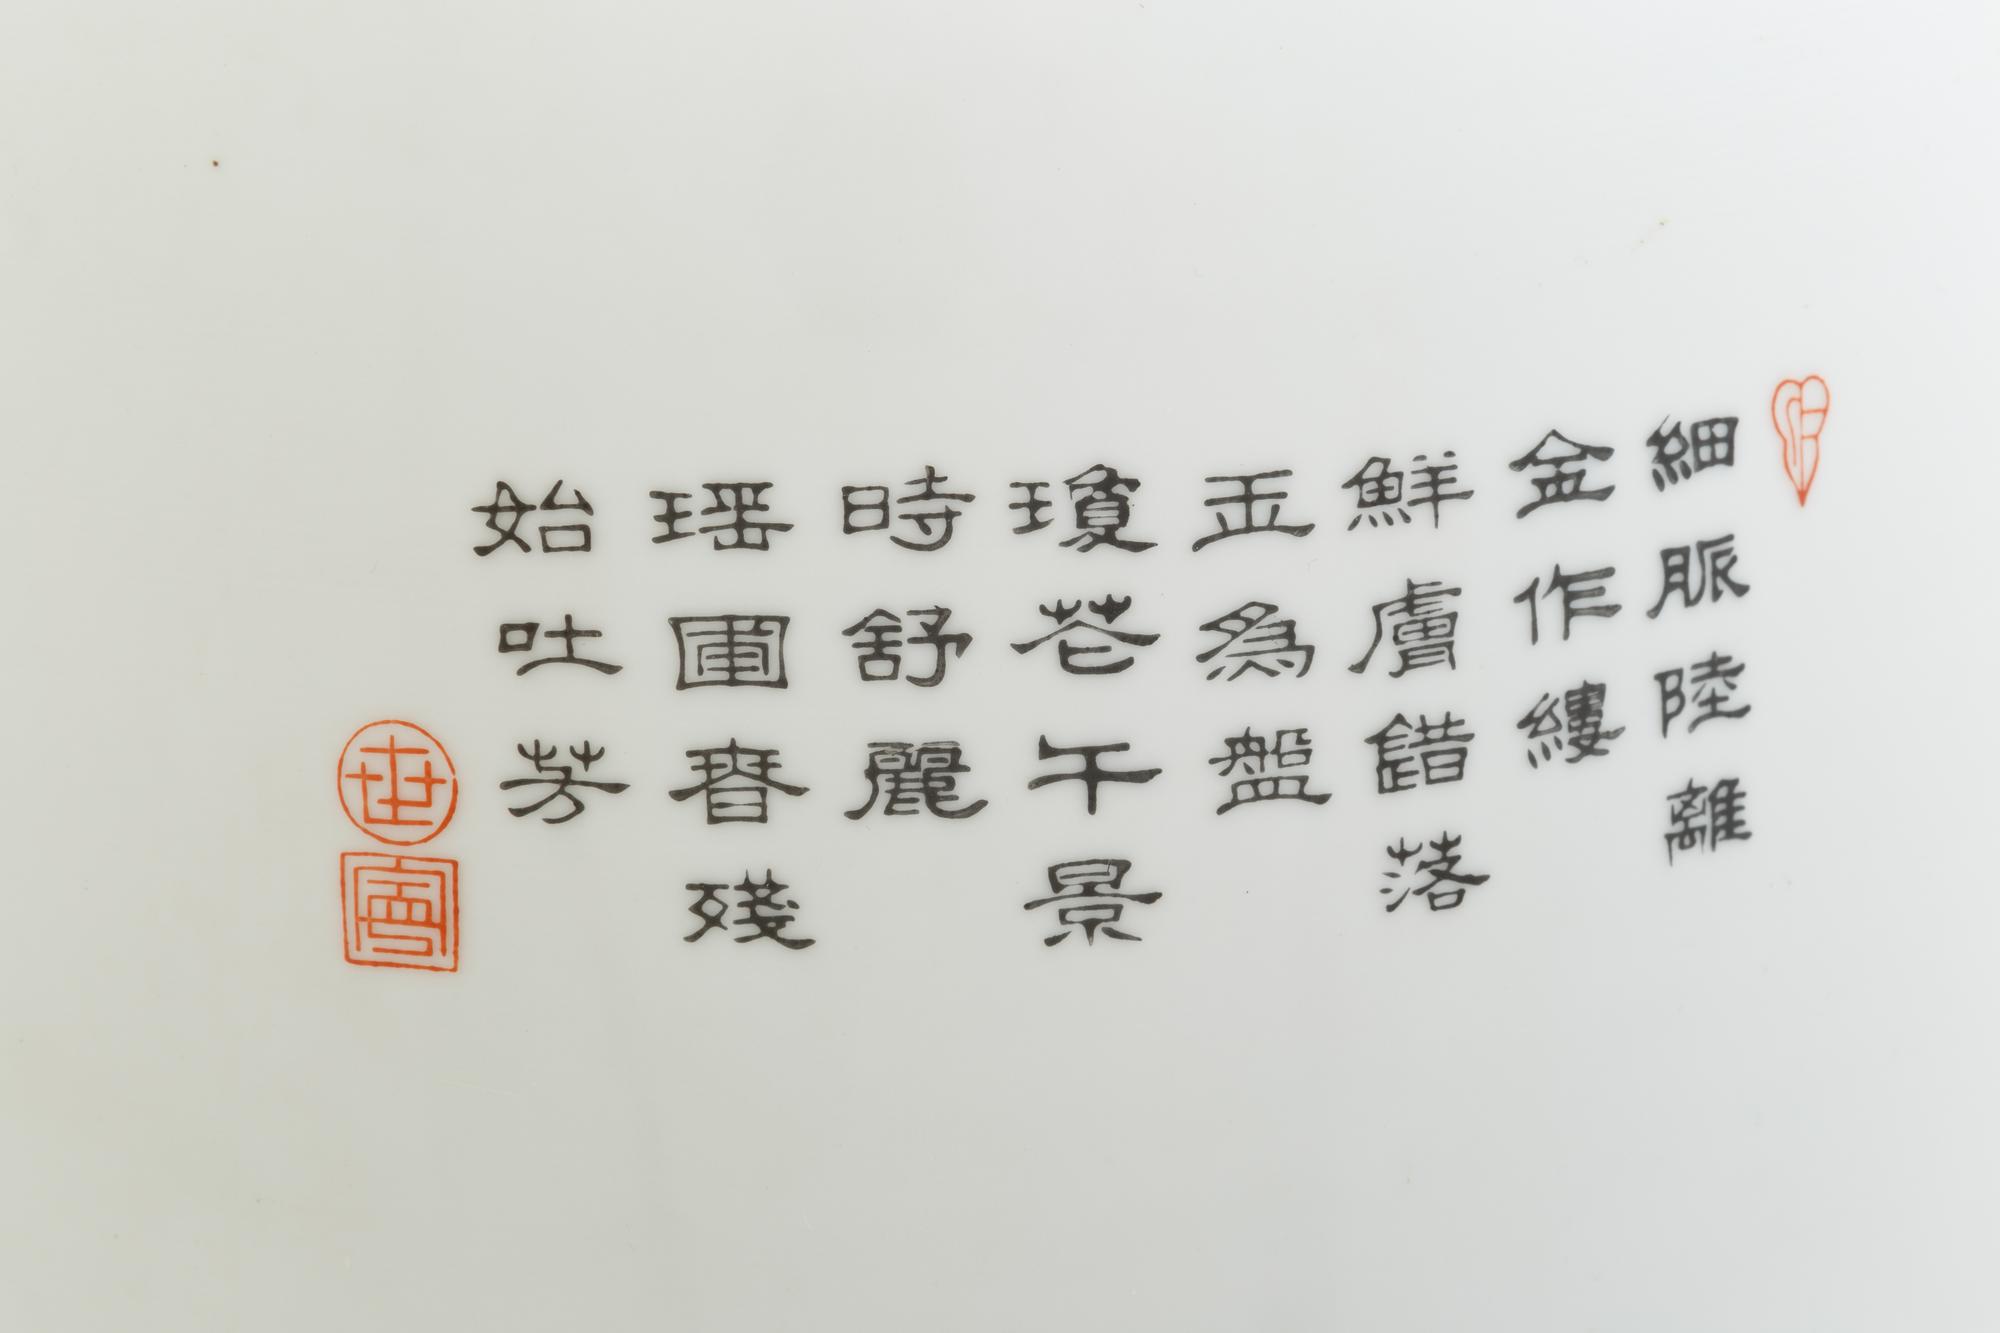 細脈陸離
金作縷
鮮膚錯落
玉為盤
瓊花午景
時舒麗
瑶圃春殘
始吐芳
世寧